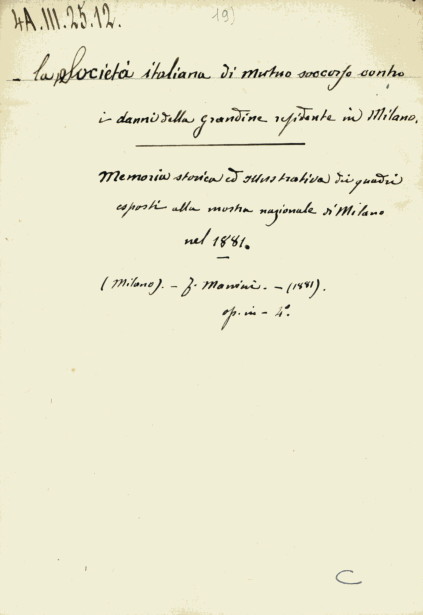 4A.III.25.12.
19)
- la Società italiana di mutuo soccorso contro
i danni della grandine residente in Milano.
Memoria storica ed illustrativa dei quadri
esposti alla mostra nazionale di Milano
nel 1881.
(Milano). - F. Manini. - (1881).
op. in - 4°.
C